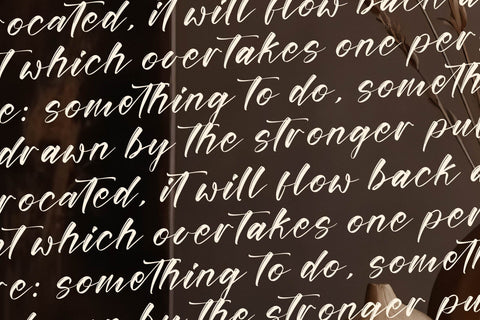 rocated, it will flow back a
t which overtakes one per
e: something to do, someth
drawn by the stronger pul
rocated, it will flow back a
nt which overtakes one per
re: something to do, someth
drawn by the stronger pul